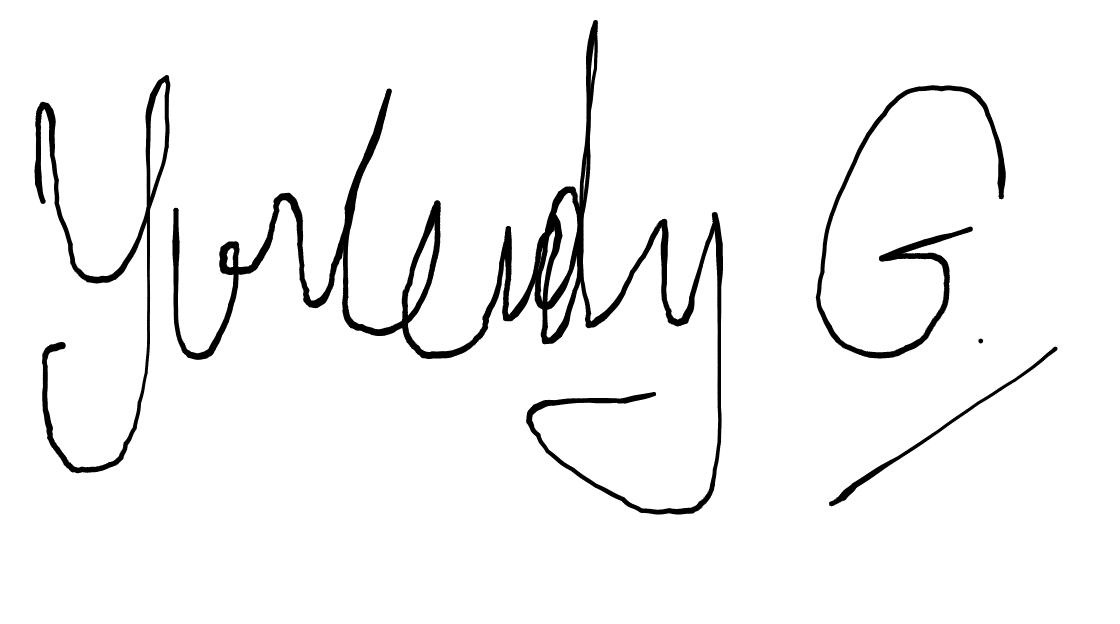 Yorlendy G.